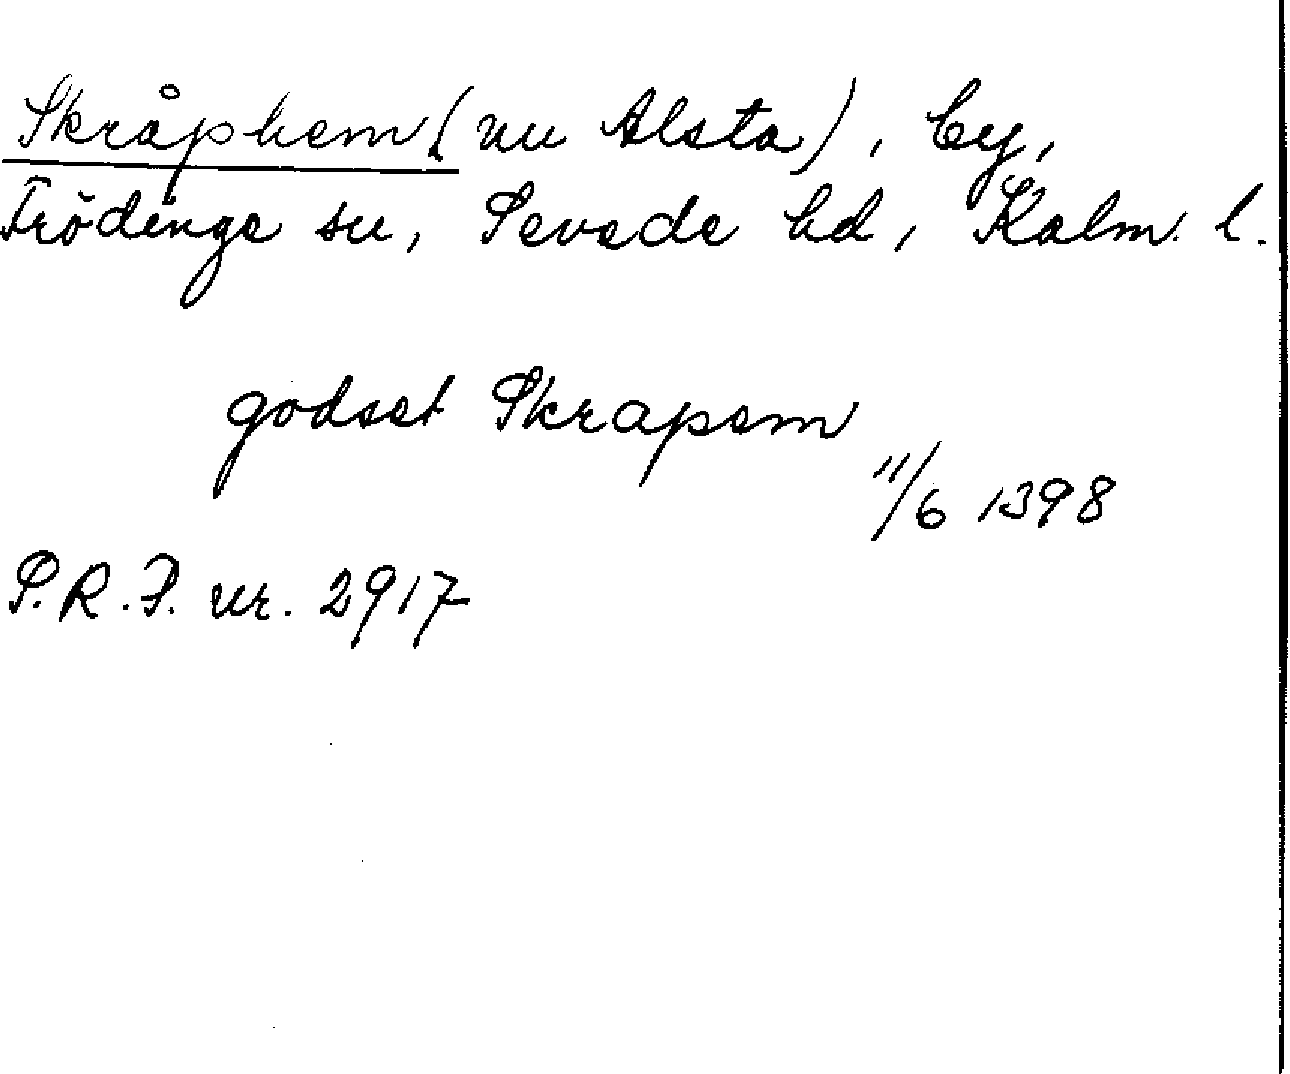 Skråphem (nu Alsta), by,
Frödinge sn, Sevede hd, Kalm. l.
godset Skrapem
11/6 1398
S.R.P. nr. 2917